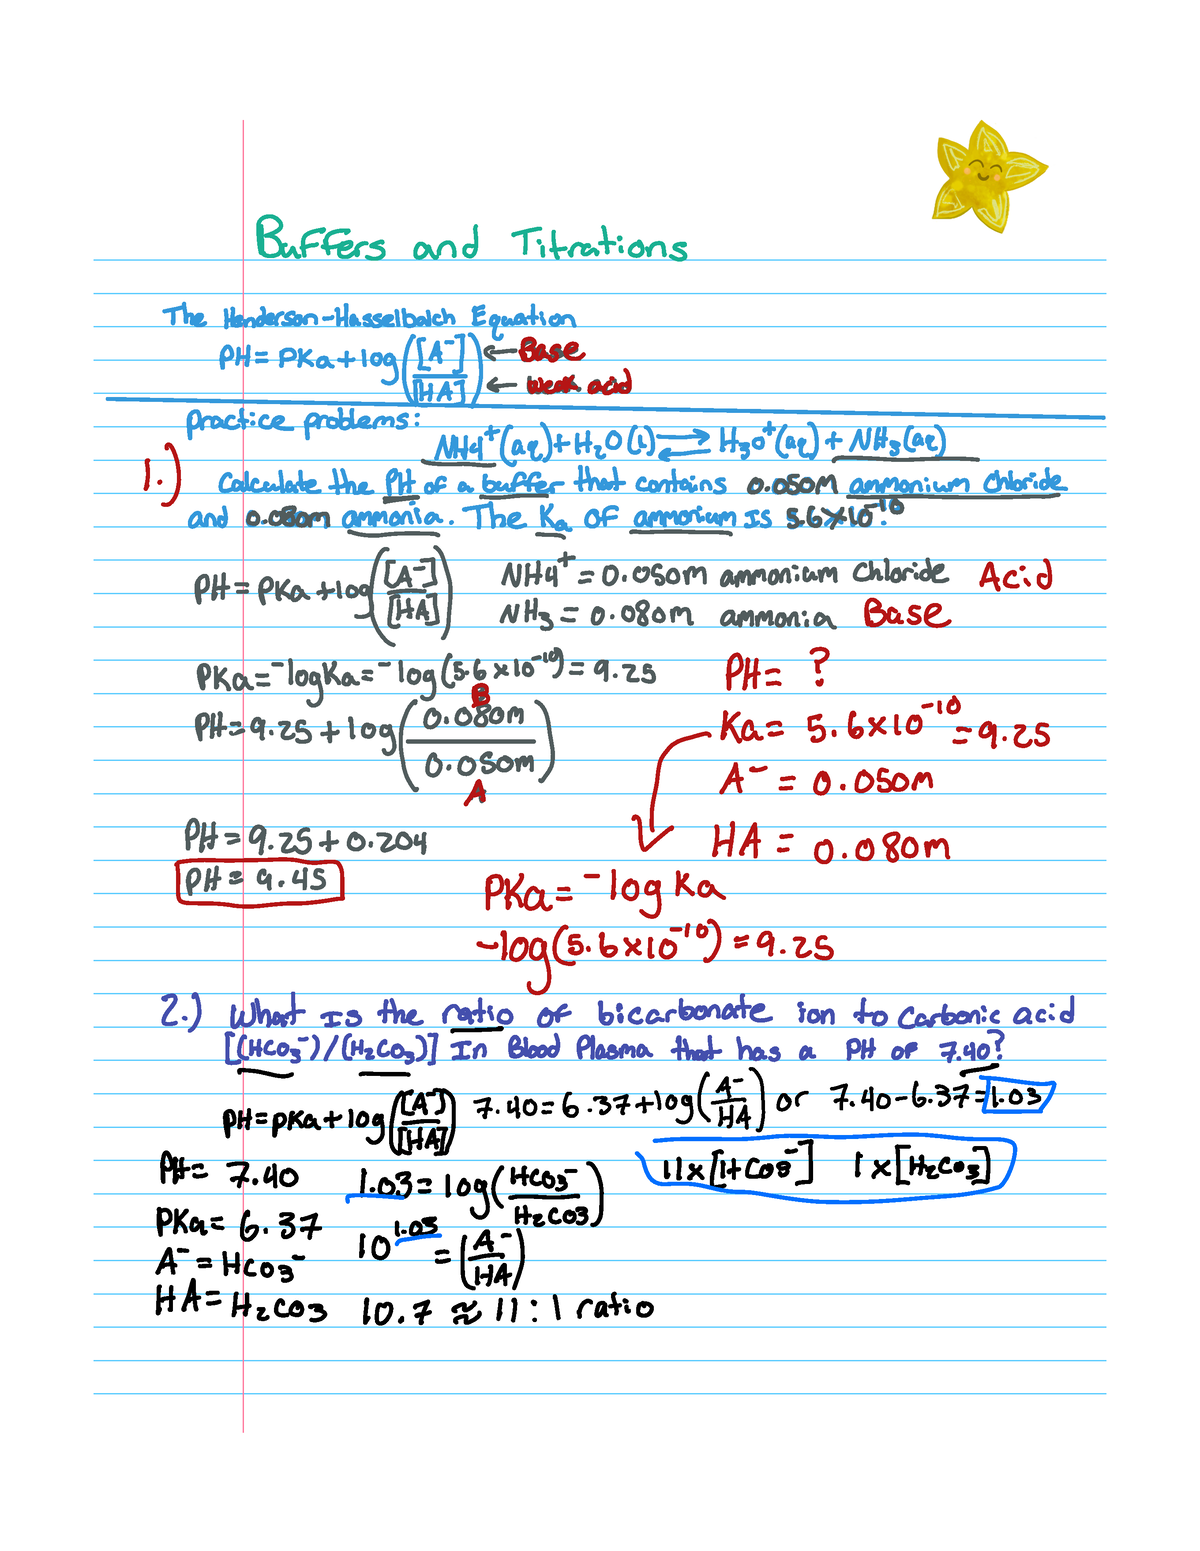 Buffers and Titrations
The Henderson-Hasselbalch Equation
PH = PKa + log([A⁻]/[HA]) ← Base ← weak acid
practice problems:
NH4⁺(aq) + H2O(l) ⇌ H3O⁺(aq) + NH3(aq)
1.) Calculate the PH of a buffer that contains 0.050M ammonium chloride
and 0.080m ammonia. The Ka of ammonium is 5.6×10⁻¹⁰.
PH = PKa + log([A⁻]/[HA])
NH4⁺ = 0.050m ammonium chloride Acid
NH3 = 0.080m ammonia Base
PKa = -log Ka = -log(5.6×10⁻¹⁰) = 9.25
PH = 9.25 + log(0.080m/0.050m) B A
PH = 9.25 + 0.204
PH = 9.45
PH = ?
Ka = 5.6×10⁻¹⁰ = 9.25
A⁻ = 0.050m
HA = 0.080m
PKa = -log Ka
-log(5.6×10⁻¹⁰) = 9.25
2.) What Is the ratio of bicarbonate ion to carbonic acid
[(HCO3⁻)/(H2CO3)] In Blood Plasma that has a PH of 7.40?
PH = pKa + log([A⁻]/[HA]) 7.40 = 6.37 + log(A⁻/HA) or 7.40 - 6.37 = 1.03
PH = 7.40
PKa = 6.37
A⁻ = HCO3⁻
HA = H2CO3
1.03 = log(HCO3⁻/H2CO3)
10^1.03 = (A⁻/HA)
10.7 ≈ 11 : 1 ratio
11 × [HCO3⁻] 1 × [H2CO3]